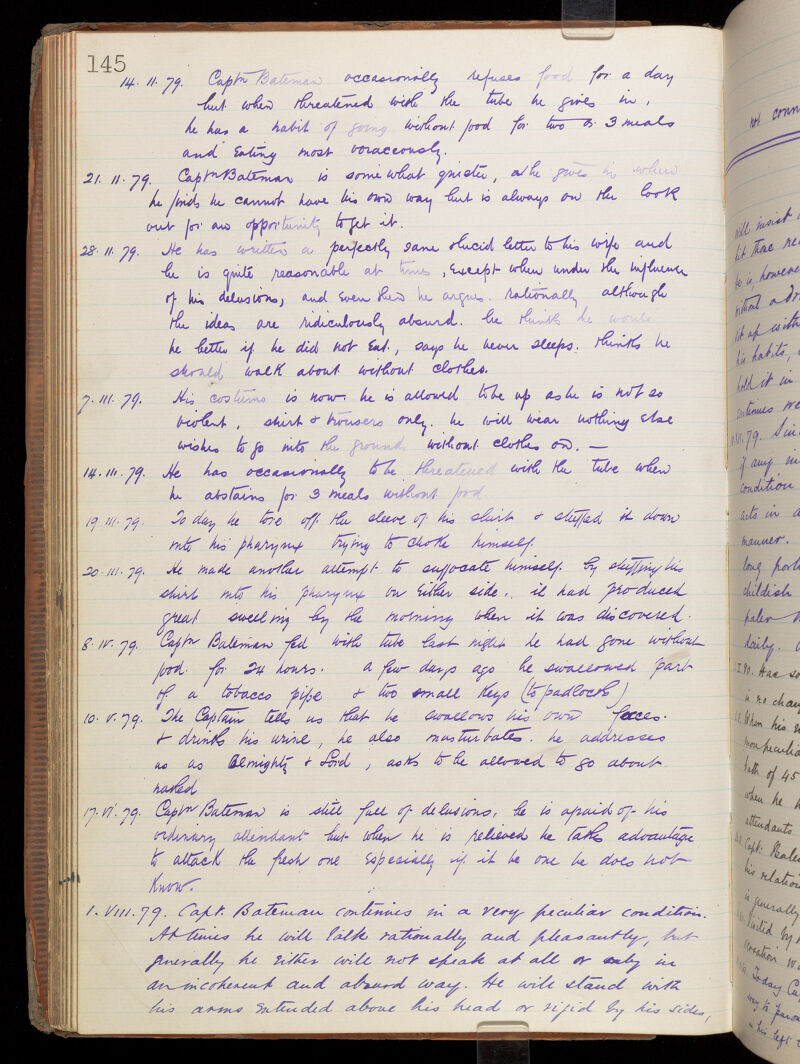 145
14. 11. 79. Captn Bateman occasionally refuses food for a day
but when threatened with the tube he gives in,
he has a habit of going without food for two or 3 meals
and Eating most voraceously.
21. 11. 79. Captn Bateman is somewhat quieter, & he gives in when
he finds he cannot have his own way but is always on the look
out for an opportunity to get it.
28. 11. 79. He has written a perfectly sane & lucid letter to his wife and
he is quite reasonable at times, Except when under the influence
of his delusions, and Even then he argues rationally although
the ideas are ridiculously absurd. he thinks he would
be better if he did not Eat, says he never sleeps. thinks he
should walk about without clothes.
7. III. 79. His costume is now he is allowed to be up as he is not so
violent, shirt & trousers only. he will wear nothing Else
wishes to go into the grounds without clothes on. —
14. III. 79. He has occasionally to be threatened with the tube when
he abstains for 3 meals without food.
19 III. 79. To day he tore off the sleeve of his shirt & stuffed it down
into his pharynx trying to choke himself.
20. III. 79. He made another attempt to suffocate himself by stuffing his
shirt into his pharynx on Either side, it had produced
great swelling by the morning when it was discovered.
8. IV. 79. Captn Bateman fed with tube last night he had gone without
food for 24 hours. a few days ago he swallowed part
of a tobacco pipe & two small Keys (to padlocks)
10. V. 79. The Captain tells us that he swallows his own faeces.
& drinks his urine, he also masturbates. he addresses
us as Almighty & Lord, asks to be allowed to go about
naked
17. VI. 79. Captn Bateman is still full of delusions, he is afraid of his
ordinary attendant but when he is relieved he takes advantage
to attack the fresh one Especially if it be one he does not
Know.
1. VIII. 79. Capt. Bateman continues in a very peculiar condition.
At times he will talk rationally and pleasantly, but
generally he Either will not speak at all or only in
an incoherent and absurd way. He will stand with
his arms Extended above his head or rigid by his sides,
not conn
will insist
his habits,
hold it in
continues
79.
if any
condition
acts in a
manner.
long
childish
paler
daily.
Has so
is no chan
When his
bath of 45
when he
attendants
Capt. Bate
his relation
is generally
visited by
Today Ca
his left